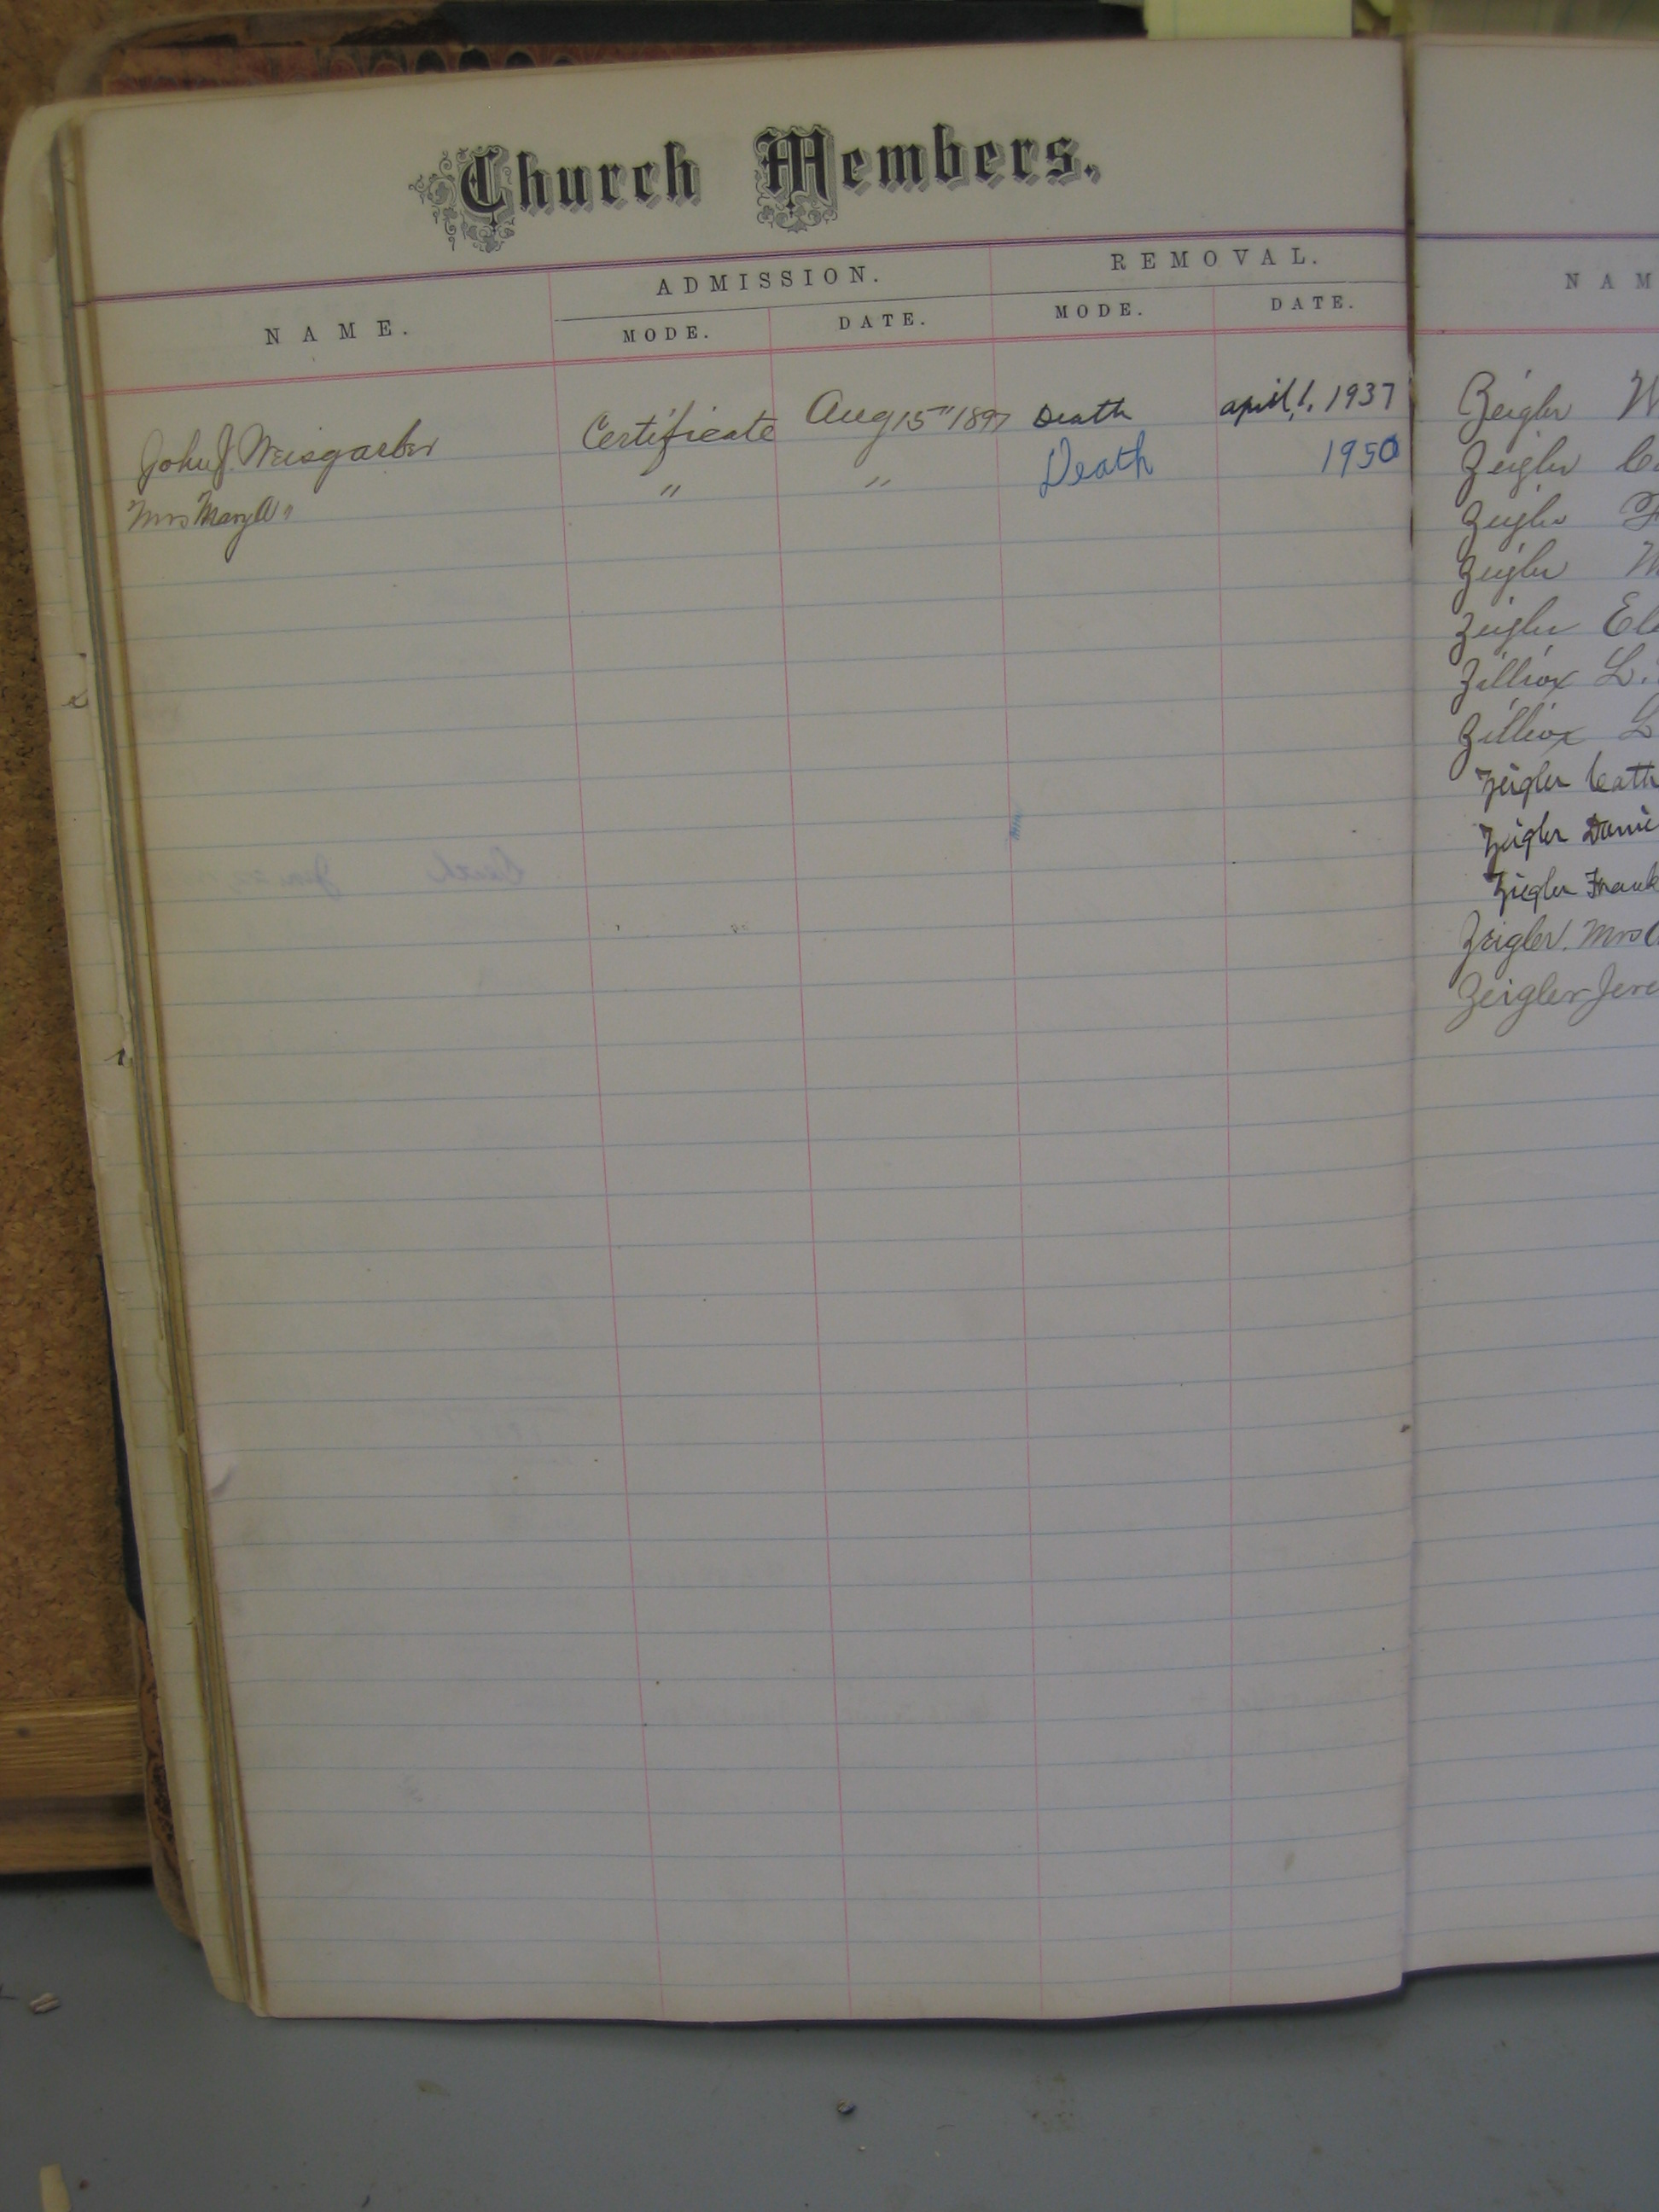 Church Members.
NAME. ADMISSION. REMOVAL.
MODE. DATE. MODE. DATE.
John J. Weisgarber Certificate Aug 15" 1897 Death april 1, 1937
Mrs Mary A " " " Death 1950
NAM
Zeigler W
Zeigler Ca
Zeigler
Zeigler
Zeigler El
Zilliox L.
Zilliox L
Zeigler Cath
Zeigler Danie
Ziegler Frank
Zeigler. Mrs
Zeigler Jere